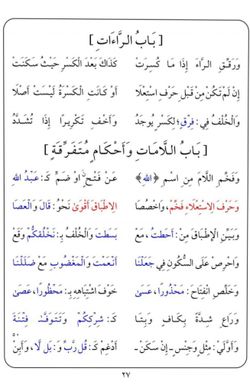 [ بَابُ الرَّاءَاتِ ]
وَرَقِّقِ الرَّاءَ إِذَا مَا كُسِرَتْ كَذَاكَ بَعْدَ الْكَسْرِ حَيْثُ سَكَنَتْ
إِنْ لَمْ تَكُنْ مِنْ قَبْلِ حَرْفِ اسْتِعْلَا أَوْ كَانَتِ الْكَسْرَةُ لَيْسَتْ أَصْلَا
وَالْخُلْفُ فِي: فِرْقٍ؛ لِكَسْرٍ يُوجَدُ وَأَخْفِ تَكْرِيرًا إِذَا تُشَدَّدُ
[ بَابُ اللَّامَاتِ وَأَحْكَامٍ مُتَفَرِّقَةٍ ]
وَفَخِّمِ اللَّامَ مِنِ اسْمِ ﴿اللهِ﴾ عَنْ فَتْحٍ اوْ ضَمٍّ كَـ: عَبْدُ اللهِ
وَحَرْفَ الِاسْتِعْلَاءِ فَخِّمْ، وَاخْصُصَا الِاطْبَاقَ أَقْوَىٰ نَحْوُ: قَالَ وَالْعَصَا
وَبَيِّنِ الْإِطْبَاقَ مِنْ: أَحَطتُ، مَعْ بَسَطتَ وَالْخُلْفُ بِـ: نَخْلُقكُّمْ وَقَعْ
وَاحْرِصْ عَلَى السُّكُونِ فِي جَعَلْنَا أَنْعَمْتَ وَالْمَغْضُوبِ مَعْ ضَلَلْنَا
وَخَلِّصِ انْفِتَاحَ: مَحْذُورًا، عَسَىٰ خَوْفَ اشْتِبَاهِهِ بِـ: مَحْظُورًا، عَصَىٰ
وَرَاعِ شِدَّةً بِكَافٍ وَبِتَا كَـ: شِرْكِكُمْ وَتَتَوَفَّىٰ فِتْنَةَ
وَأَوَّلَيْ: مِثْلٍ وَجِنْسٍ - إِنْ سَكَنْ - أَدْغِمْ كَـ: قُل رَّبِّ وَ: بَل لَّا، وَأَبِنْ
٢٧